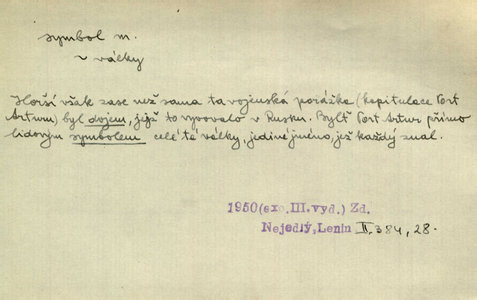 symbol m.
~ války
Horší však zase než sama ta vojenská porážka (kapitulace Port
Arturu) byl dojem, jejž to vyvolalo v Rusku. Bylť Port Artur přímo
lidovým symbolem celé té války, jediné jméno, jež každý znal.
1950(exc.III.vyd.) Zd.
Nejedlý, Lenin II. 384, 28.